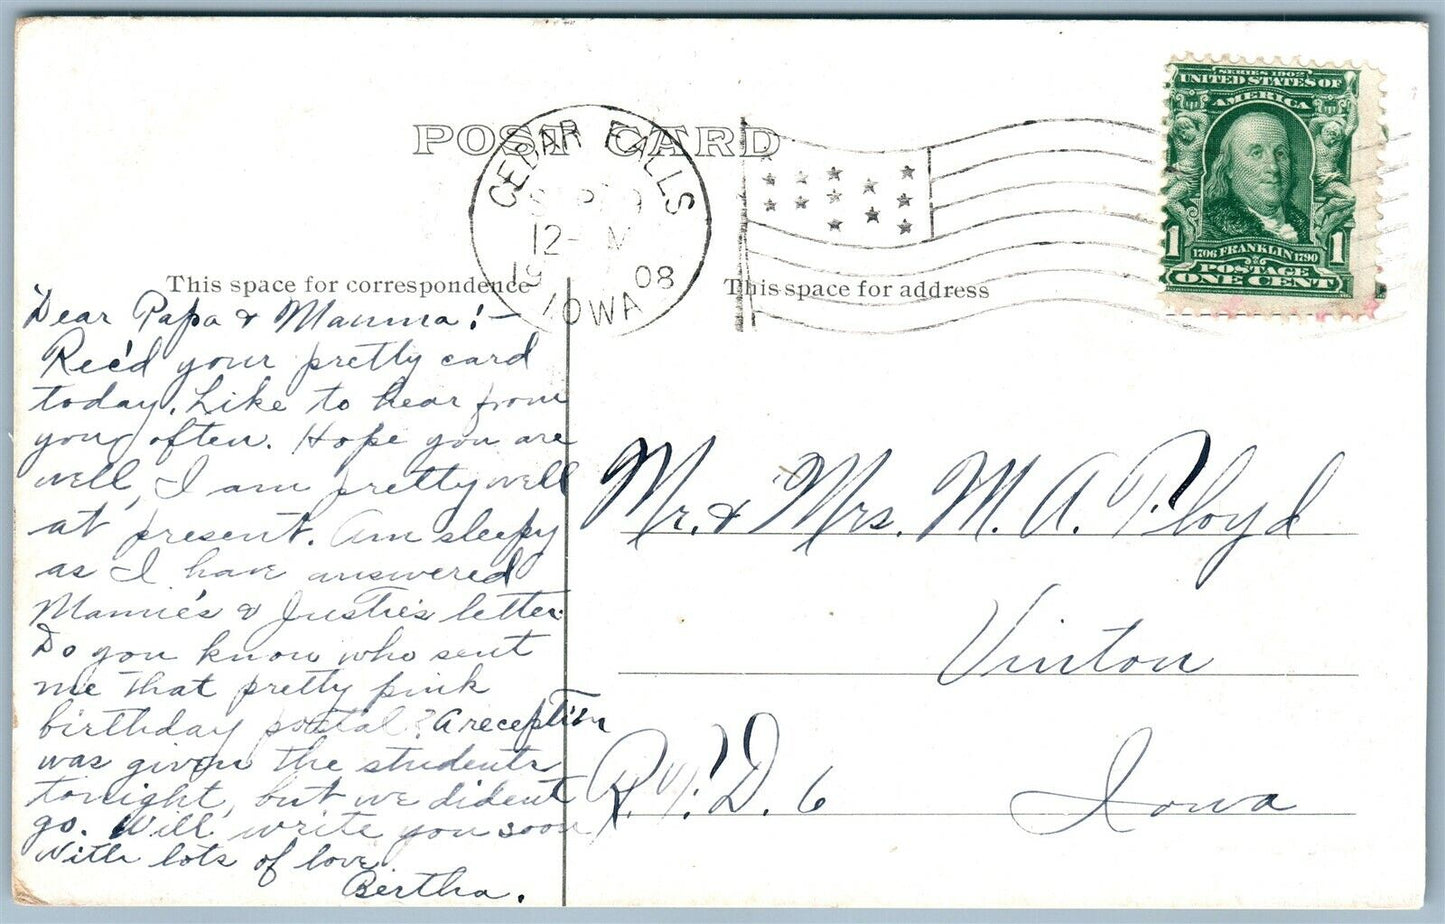 POST CARD
CEDAR FALLS
SEP 9
12- M
19 08
IOWA
SERIES 1902
UNITED STATES OF
AMERICA
1 1
1706 FRANKLIN 1790
POSTAGE
ONE CENT
This space for correspondence
This space for address
Dear Papa & Mamma!-
Rec'd your pretty card
today. Like to hear from
you often. Hope you are
well, I am pretty well
at present. Am sleepy
as I have answered
Mamie's & Justie's letter.
Do you know who sent
me that pretty pink
birthday postal? A reception
was given the students
tonight, but we dident
go. Will write you soon
With lots of love.
Bertha.
Mr. & Mrs. M. A. Floyd
Vinton
R.F.D. 6 Iowa